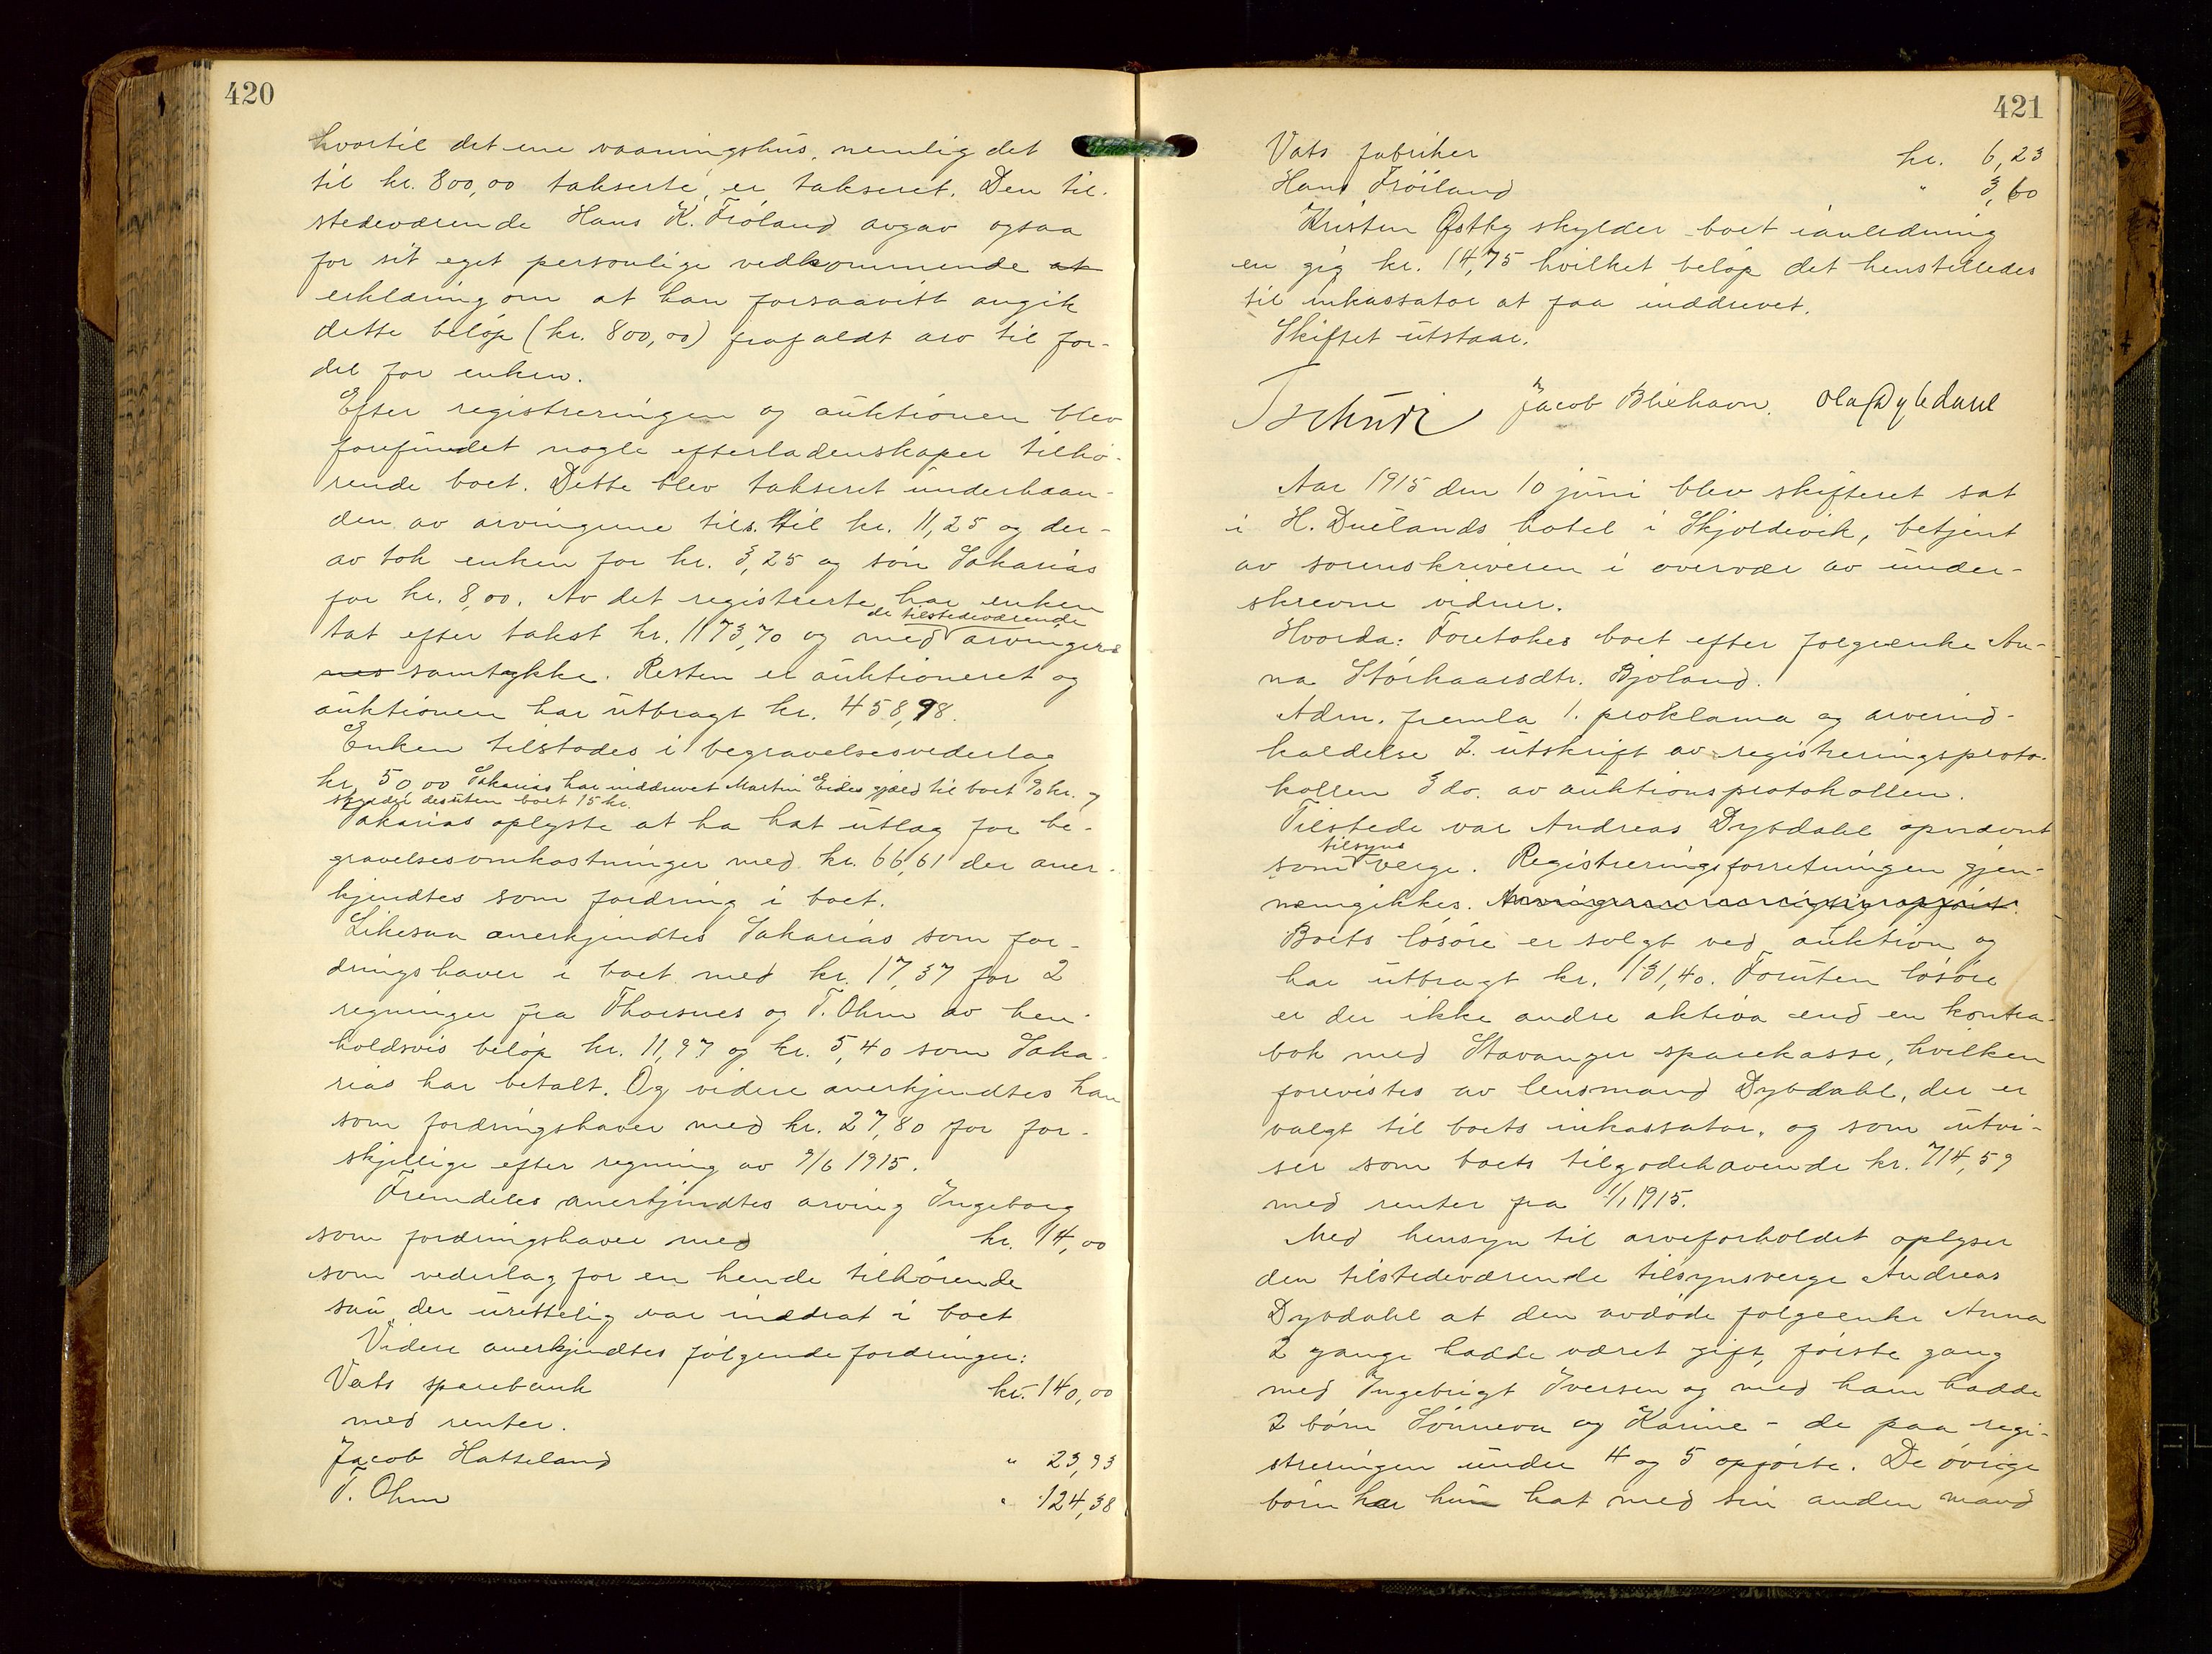 420
hvortil det ene vaaningshus, nemlig det
til kr. 800,00 takserte, er takseret. Den til-
stedeværende Hans K. Fröland avgav ogsaa
for sit eget personlige vedkommende at
erklæring om at han forsaavitt angik
dette belöp (kr. 800,00) frafaldt arv til for-
del for enken.
Efter registreringen og auktionen blev
forefundet nogle efterladenskaper tilhö-
rende boet. Dette blev takseret underhaan-
den av arvingerne tils. til kr. 11,25 og der-
av tok enken for kr. 3,25 og sön Sakarias
for kr. 8,00. Av det registrerte har enken
de tilstedeværende
tat efter takst kr. 1173,70 og med arvingers
nes samtykke. Resten er auktioneret og
auktionen har utbragt kr. 458,98.
Enken tilstodes i begravelsesvederlag
kr. 50,00 Sakarias har inddrevet Martin Eides gjæld til boet 90 kr. og
skylder desuten boet 15 kr.
Sakarias oplyste at ha hat utlag for be-
gravelsesomkostninger med kr. 66,61 der aner-
kjendtes som fordring i boet.
Likesaa anerkjendtes Sakarias som for-
dringshaver i boet med kr. 17,37 for 2
regninger fra Thorsnes og T. Ohm av hen-
holdsvis belöp kr. 11,97 og kr. 5,40 som Saka-
rias har betalt. Og videre anerkjendtes han
som fordringshaver med kr. 27,80 for for-
skjellige efter regning av 9/6 1915.
Fremdeles anerkjendtes arving Ingeborg
som fordringshaver med kr. 14,00
som vederlag for en hende tilhörende
sau der urettelig var inddrat i boet
Videre anerkjendtes fölgende fordringer:
Vats sparebank kr. 140,00
med renter.
Jacob Hatteland " 23,93
T. Ohm " 124,38
421
Vats fabriker kr. 6,23
Hans Fröiland " 3,60
Kristen Østby skylder boet ianledning
en gig kr. 14,75 hvilket belöp det henstilledes
til inkassator at faa inddrevet.
Skiftet utstaar.
Tschudi Jacob Blixhavn. Ola Dybdahl
Aar 1915 den 10 juni blev skifteret sat
i H. Duelands hotel i Skjoldevik, betjent
av sorenskriveren i overvær av under-
skrevne vidner.
Hvorda: Foretokes boet efter folgeenke An-
na Storkaarsdtr. Bjoland.
Adm. fremla 1. proklama og arveind-
kaldelse 2. utskrift av registreringsproto-
kollen 3 do. av auktionsprotokollen.
Tilstede var Andreas Dybdahl opnævnt
tilsyns
som verge. Registreringsforretningen gjen-
nemgikkes.
Boets lösöre er solgt ved auktion og
har utbragt kr. 131,40. Foruten lösöre
er der ikke andre aktiva end en kontra-
bok med Stavanger sparekasse, hvilken
forevistes av lensmand Dybdahl, der er
valgt til boets inkassator, og som utvi-
ser som boets tilgodehavende kr. 714,59
med renter fra 1/1 1915.
Med hensyn til arveforholdet oplyser
den tilstedeværende tilsynsverge Andreas
Dybdahl at den avdöde folgeenke Anna
2 gange hadde været gift, förste gang
med Ingebrigt Iversen og med ham hadde
2 börn Sönneva og Karine - de paa regi-
streringen under 4 og 5 opförte. De övrige
börn har hun hat med sin anden mand